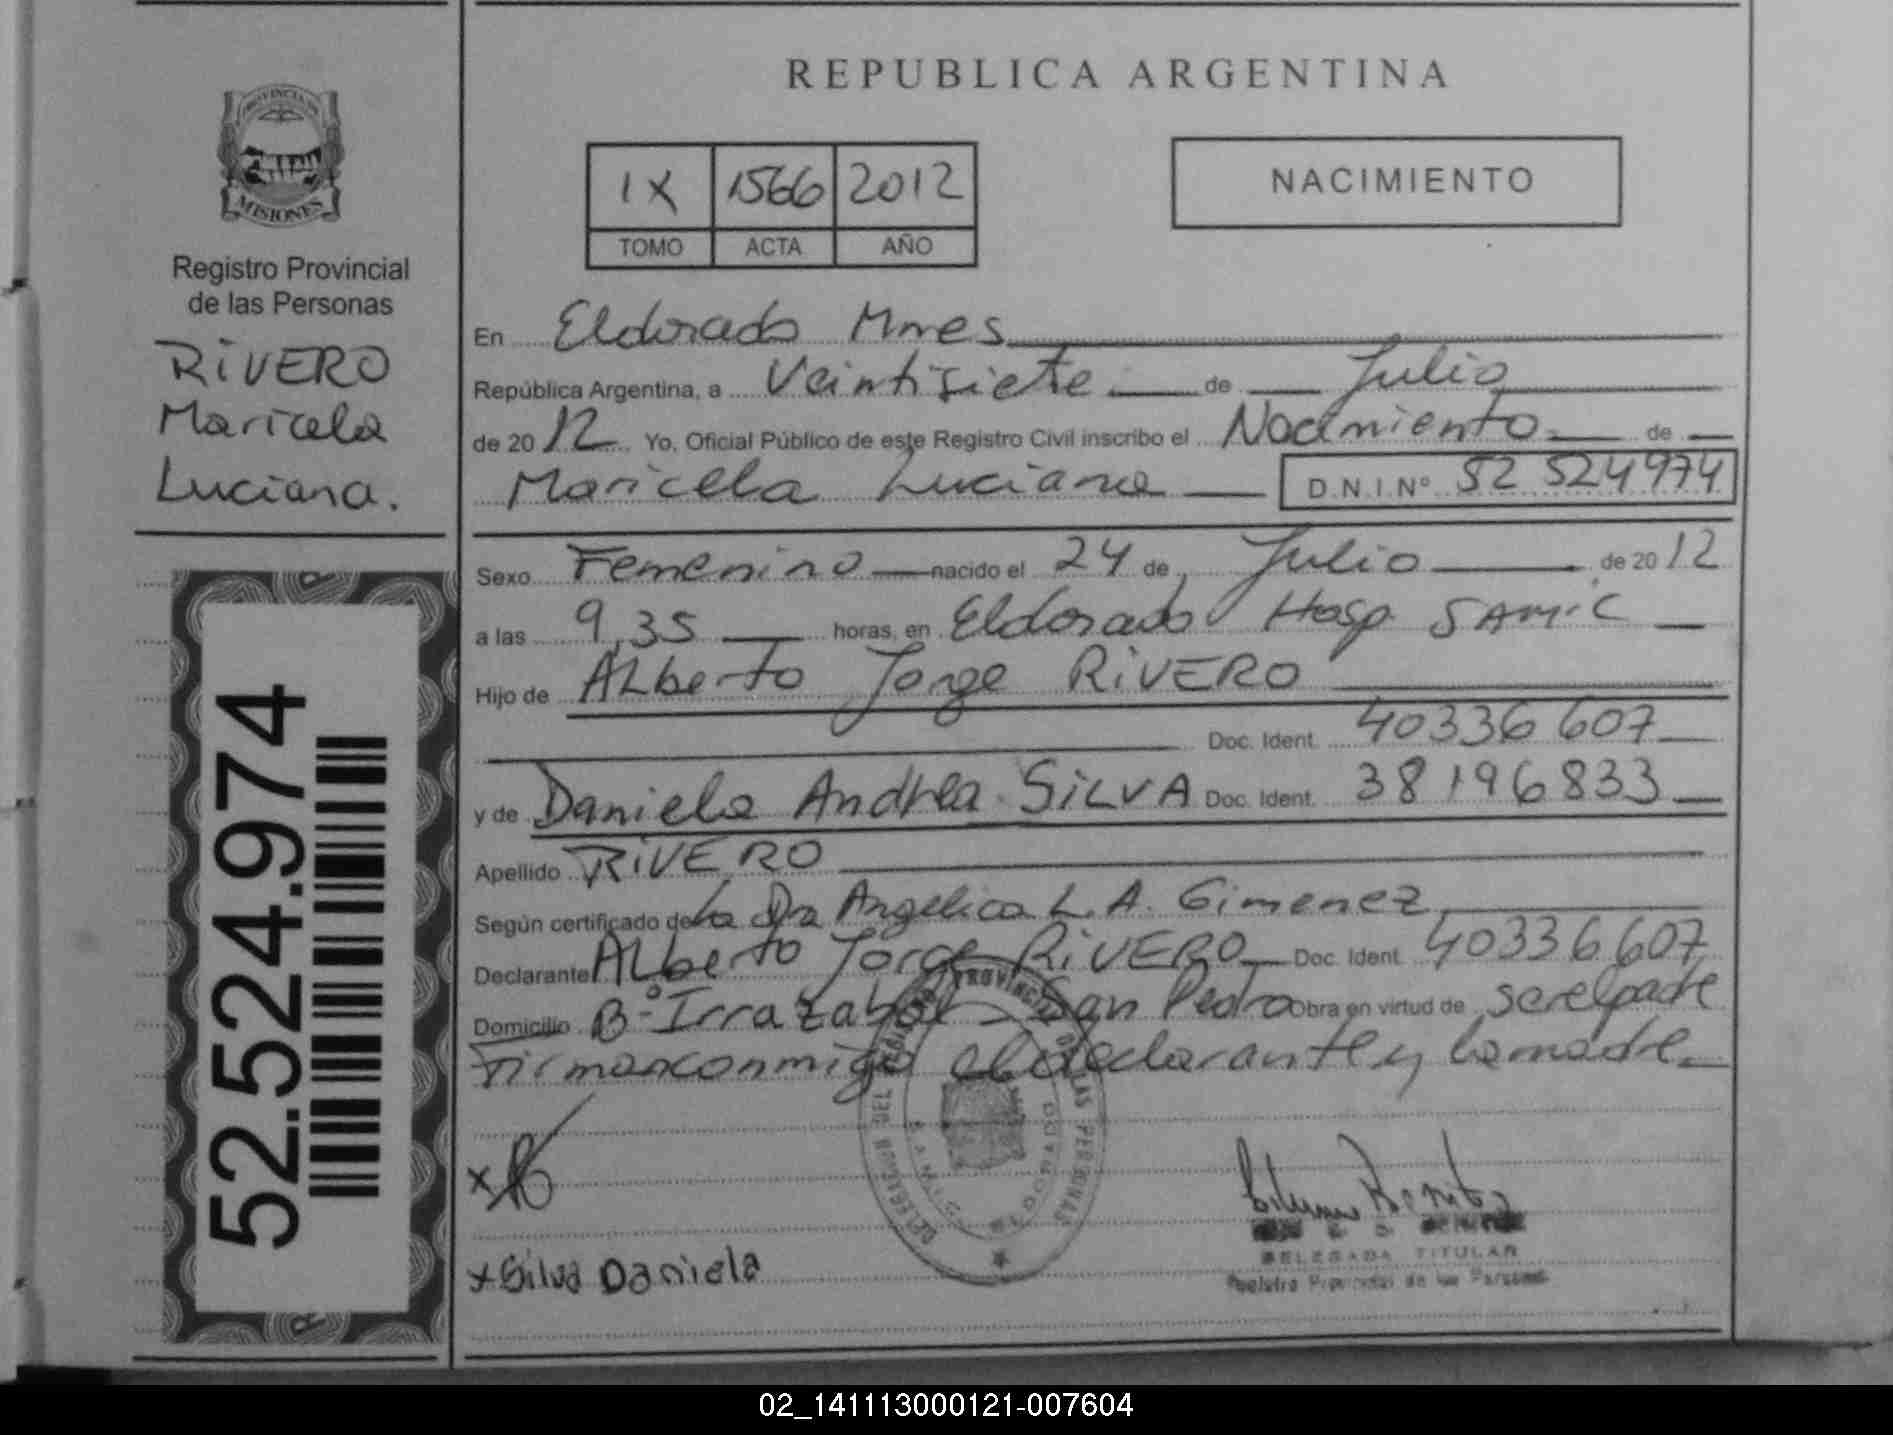 REPUBLICA ARGENTINA
PROVINCIA DE
MISIONES
Registro Provincial
de las Personas
RIVERO
Maricela
Luciana.
52.524.974
IX 1566 2012
TOMO ACTA AÑO
NACIMIENTO
En Eldorado Mnes
República Argentina, a Veintisiete de Julio
de 2012 Yo, Oficial Público de este Registro Civil inscribo el Nacimiento de
Maricela Luciana D.N.I.Nº 52 524974
Sexo Femenino nacido el 24 de Julio de 2012
a las 9,35 horas, en Eldorado Hosp. SAMIC
Hijo de Alberto Jorge RIVERO
Doc. Ident. 40336607
y de Daniela Andrea SILVA Doc. Ident. 38196833
Apellido RIVERO
Según certificado de la Dra Angelica L. A. Gimenez
Declarante Alberto Jorge RIVERO Doc. Ident. 40336607
Domicilio Bº Irrazabal - San Pedro Obra en virtud de ser el padre
Firman conmigo el declarante y la madre
x
x Silva Daniela
DELEGADA TITULAR
Registro Provincial de las Personas
02_141113000121-007604